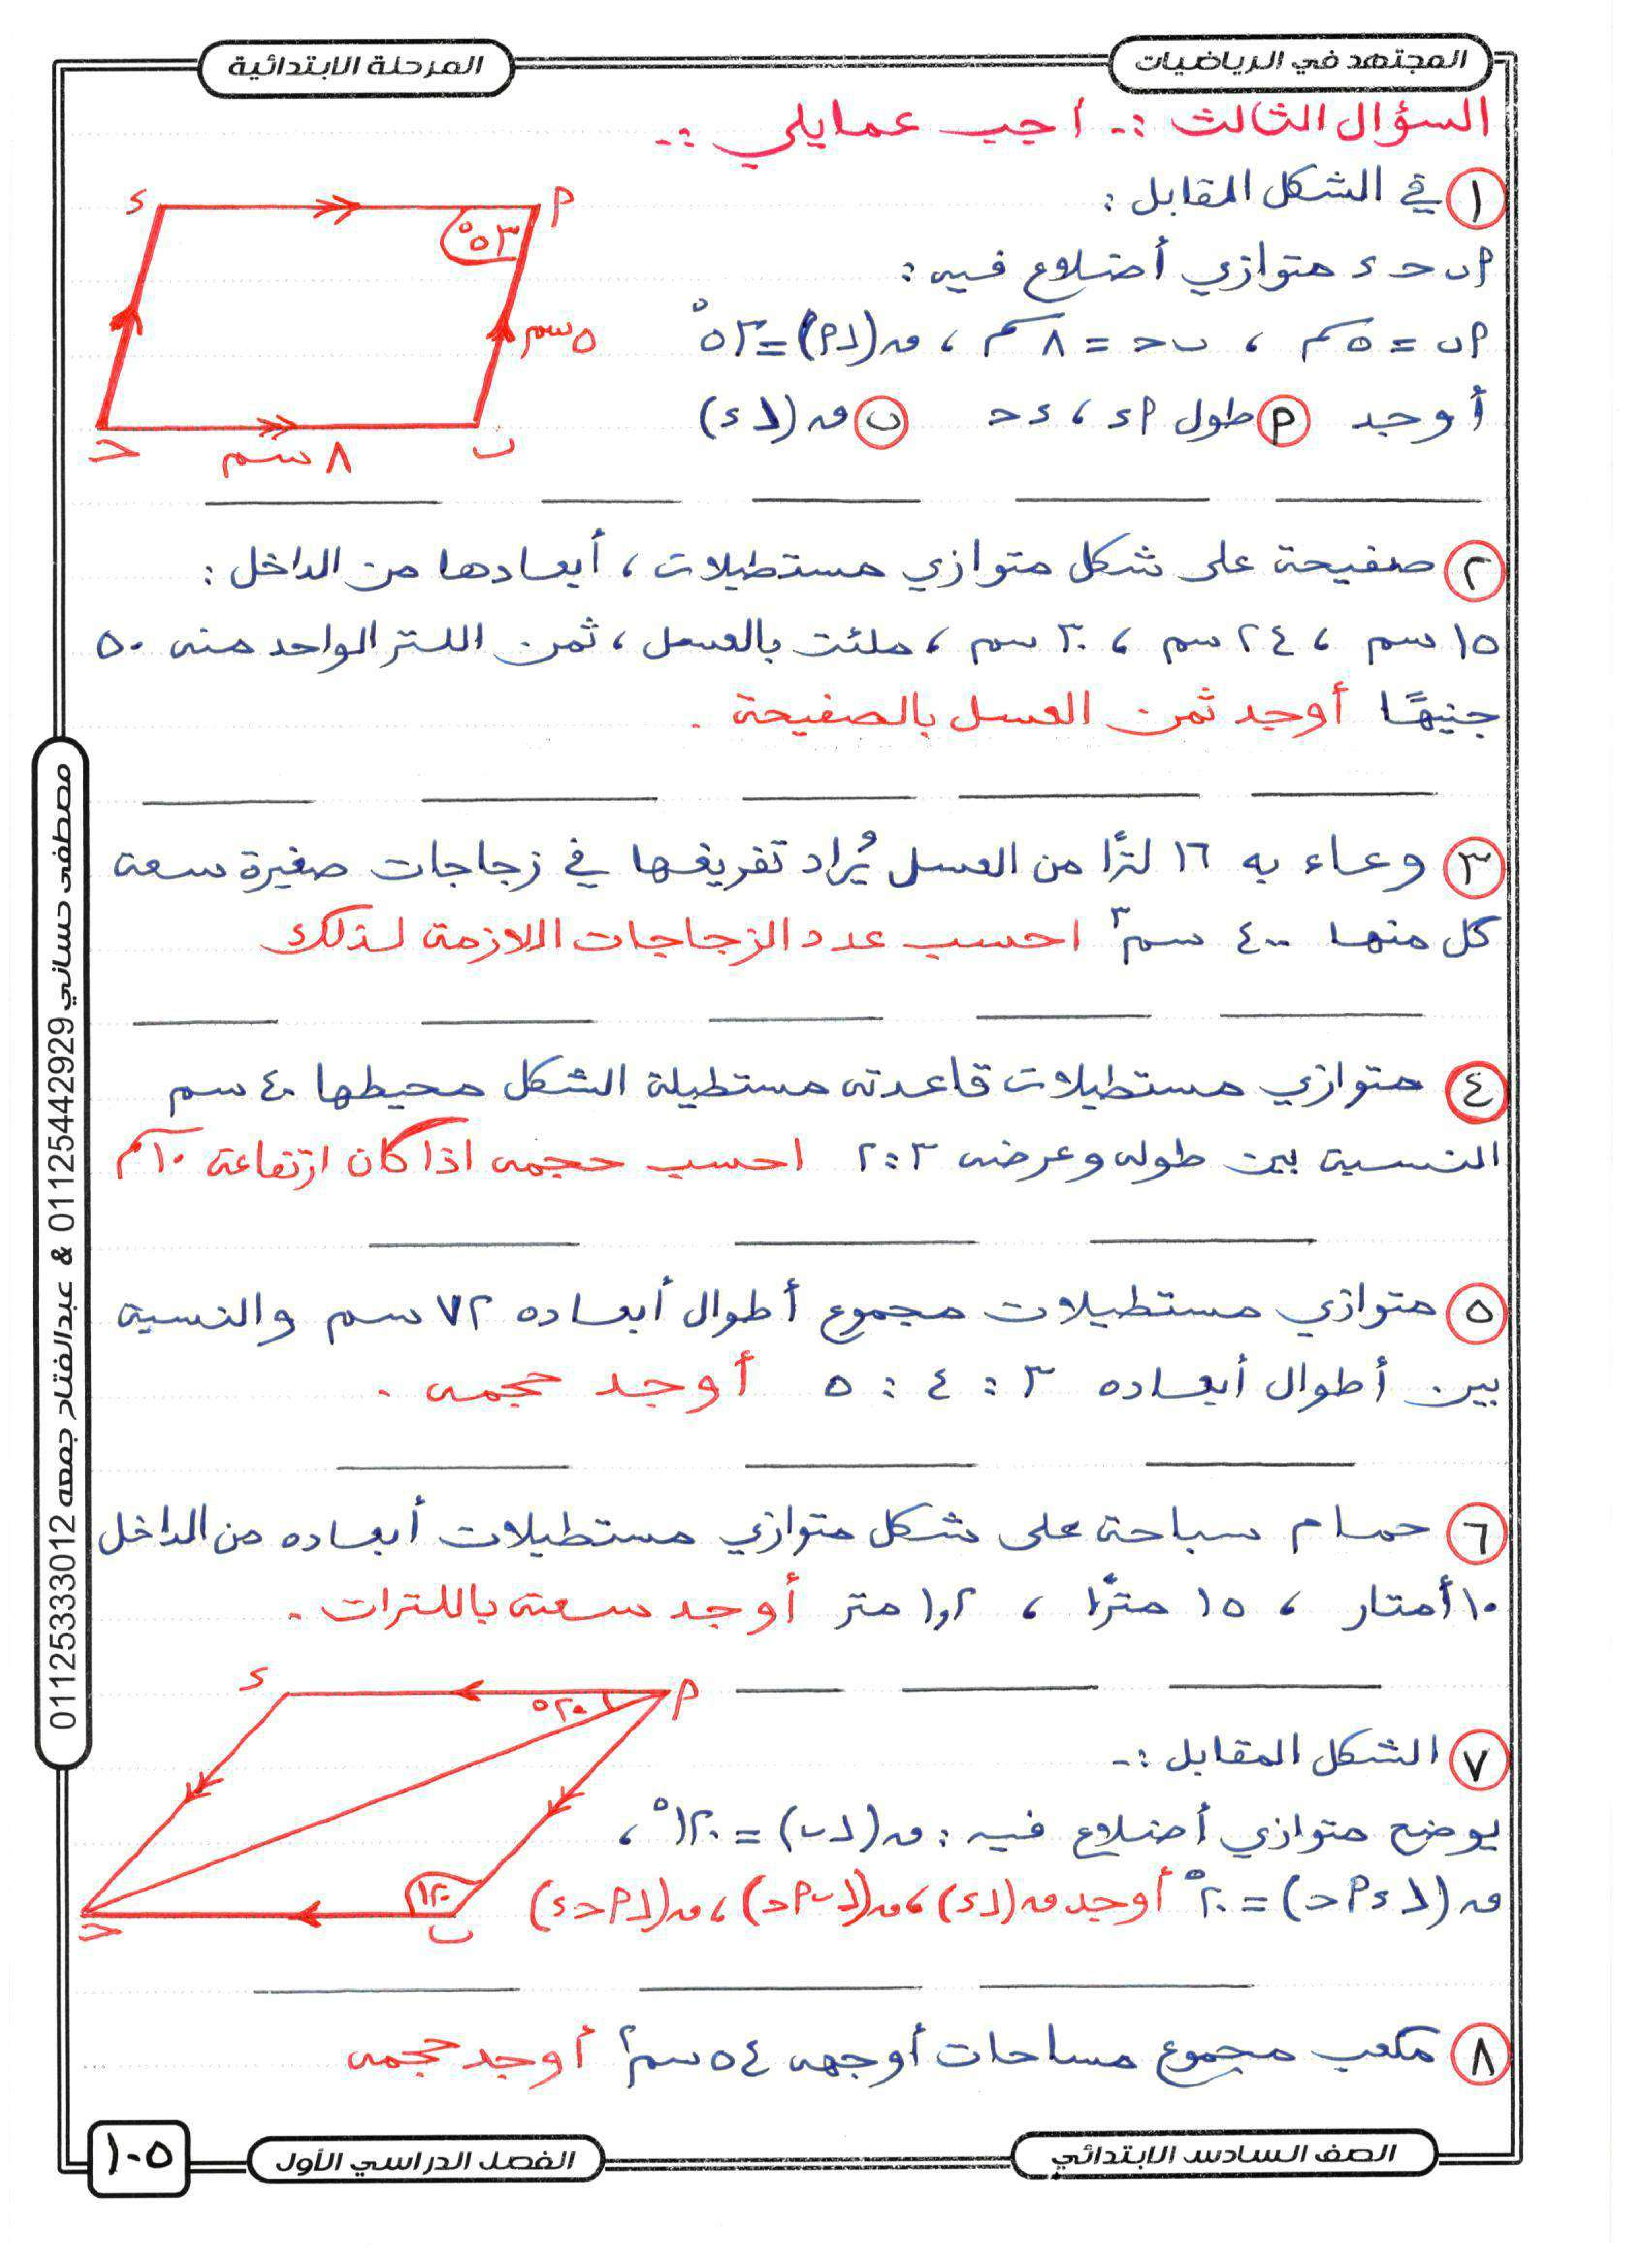 المجتهد في الرياضيات
المرحلة الابتدائية
السؤال الثالث :- أجب عما يلي :-
١ في الشكل المقابل :
أ ب ح د متوازي أضلاع فيه :
أب = ٥ سم ، ب ح = ٨ سم ، ق(∠أ) = ٥٣°
أوجد أ طول أد ، د ح ب ق(∠د)
د
أ
٥٣°
٥ سم
ح
ب
٨ سم
٢ صفيحة على شكل متوازي مستطيلات ، أبعادها من الداخل :
١٥ سم ، ٢٤ سم ، ٣٠ سم ، ملئت بالعسل ، ثمن اللتر الواحد منه ٥٠
جنيهًا أوجد ثمن العسل بالصفيحة .
٣ وعاء به ١٦ لترًا من العسل يُراد تفريغها في زجاجات صغيرة سعة
كل منها ٤٠٠ سم٣ احسب عدد الزجاجات اللازمة لذلك
٤ متوازي مستطيلات قاعدته مستطيلة الشكل محيطها ٤٠ سم
النسبة بين طوله وعرضه ٣:٢ احسب حجمه اذا كان ارتفاعة ١٠ سم
٥ متوازي مستطيلات مجموع أطوال أبعاده ٧٢ سم والنسبة
بين أطوال أبعاده ٣ : ٤ : ٥ أوجد حجمه .
٦ حمام سباحة على شكل متوازي مستطيلات أبعاده من الداخل
١٠ أمتار ، ١٥ مترًا ، ١,٢ متر أوجد سعته باللترات .
د
أ
٢٠°
٧ الشكل المقابل :-
يوضح متوازي أضلاع فيه : ق(∠ب) = ١٢٠° ،
ق(∠د أ ح) = ٢٠° أوجد ق(∠د) ، ق(∠ب أ ح) ، ق(∠أ ح د)
١٢٠
ح
ب
٨ مكعب مجموع مساحات أوجهه ٥٤ سم٢ أوجد حجمه
مصطفى حساني 01125442929 & عبدالفتاح جمعه 01125333012
الصف السادس الابتدائي
الفصل الدراسي الأول
١٠٥